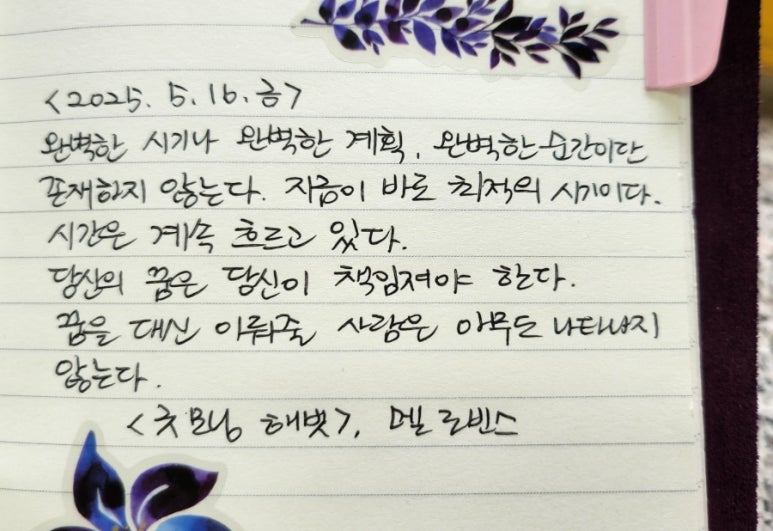 <2025. 5. 16. 금>
완벽한 시기나 완벽한 계획, 완벽한 순간이란
존재하지 않는다. 지금이 바로 최적의 시기이다.
시간은 계속 흐르고 있다.
당신의 꿈은 당신이 책임져야 한다.
꿈을 대신 이뤄줄 사람은 아무도 나타나지
않는다.
<굿모닝 해빗>, 멜 로빈스